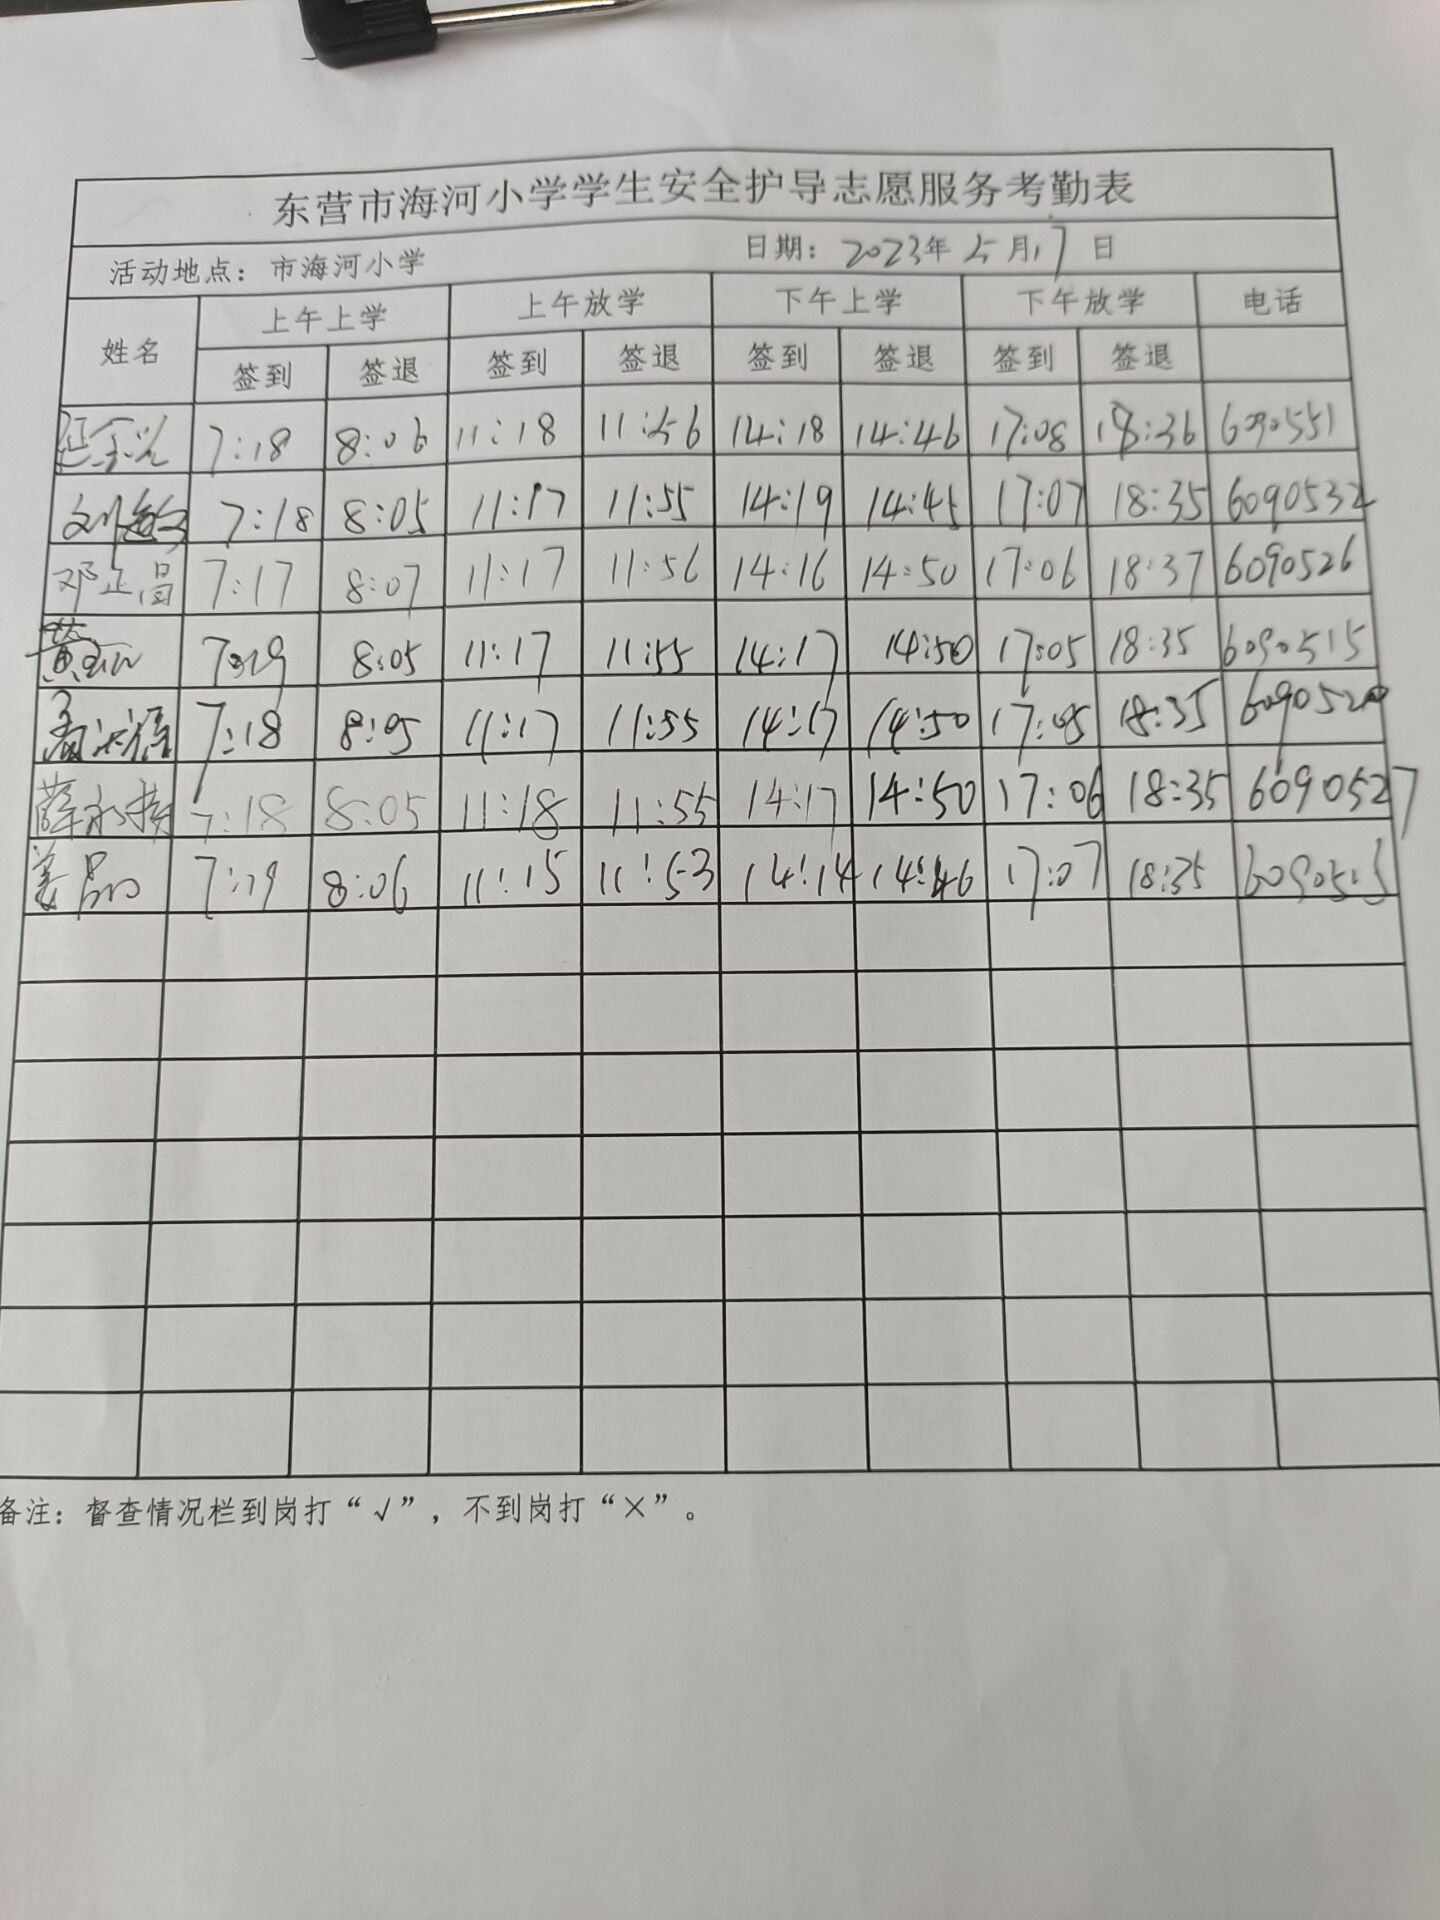 东营市海河小学学生安全护导志愿服务考勤表
活动地点：市海河小学 日期：2023年5月17日
姓名 上午上学 上午放学 下午上学 下午放学 电话
签到 签退 签到 签退 签到 签退 签到 签退
7:18 8:06 11:18 11:56 14:18 14:46 17:08 18:36 6090551
刘敏 7:18 8:05 11:17 11:55 14:19 14:45 17:07 18:35 6090532
邓正昌 7:17 8:07 11:17 11:56 14:16 14:50 17:06 18:37 6090526
黄 8:05 11:17 11:55 14:17 14:50 17:05 18:35 6090515
7:18 8:05 11:17 11:55 14:17 14:50 17:05 18:35 6090520
薛 7:18 8:05 11:18 11:55 14:17 14:50 17:06 18:35 6090527
姜 7:19 8:06 11:15 11:53 14:14 14:46 17:07 18:35 6090513
备注：督查情况栏到岗打“√”，不到岗打“×”。